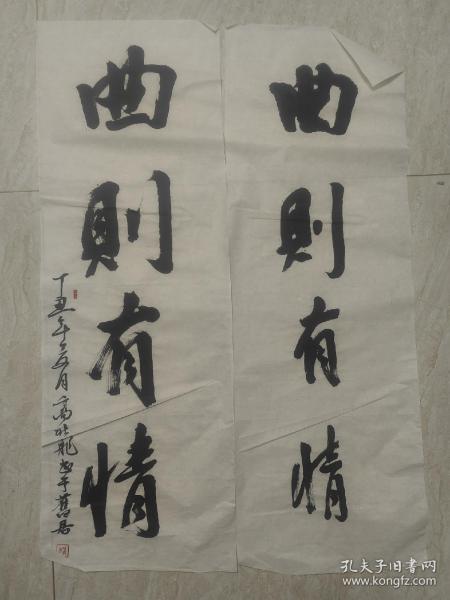 曲則有情
曲則有情
丁丑年五月高壯飛書于舊居
孔夫子旧书网
www.kongfz.com